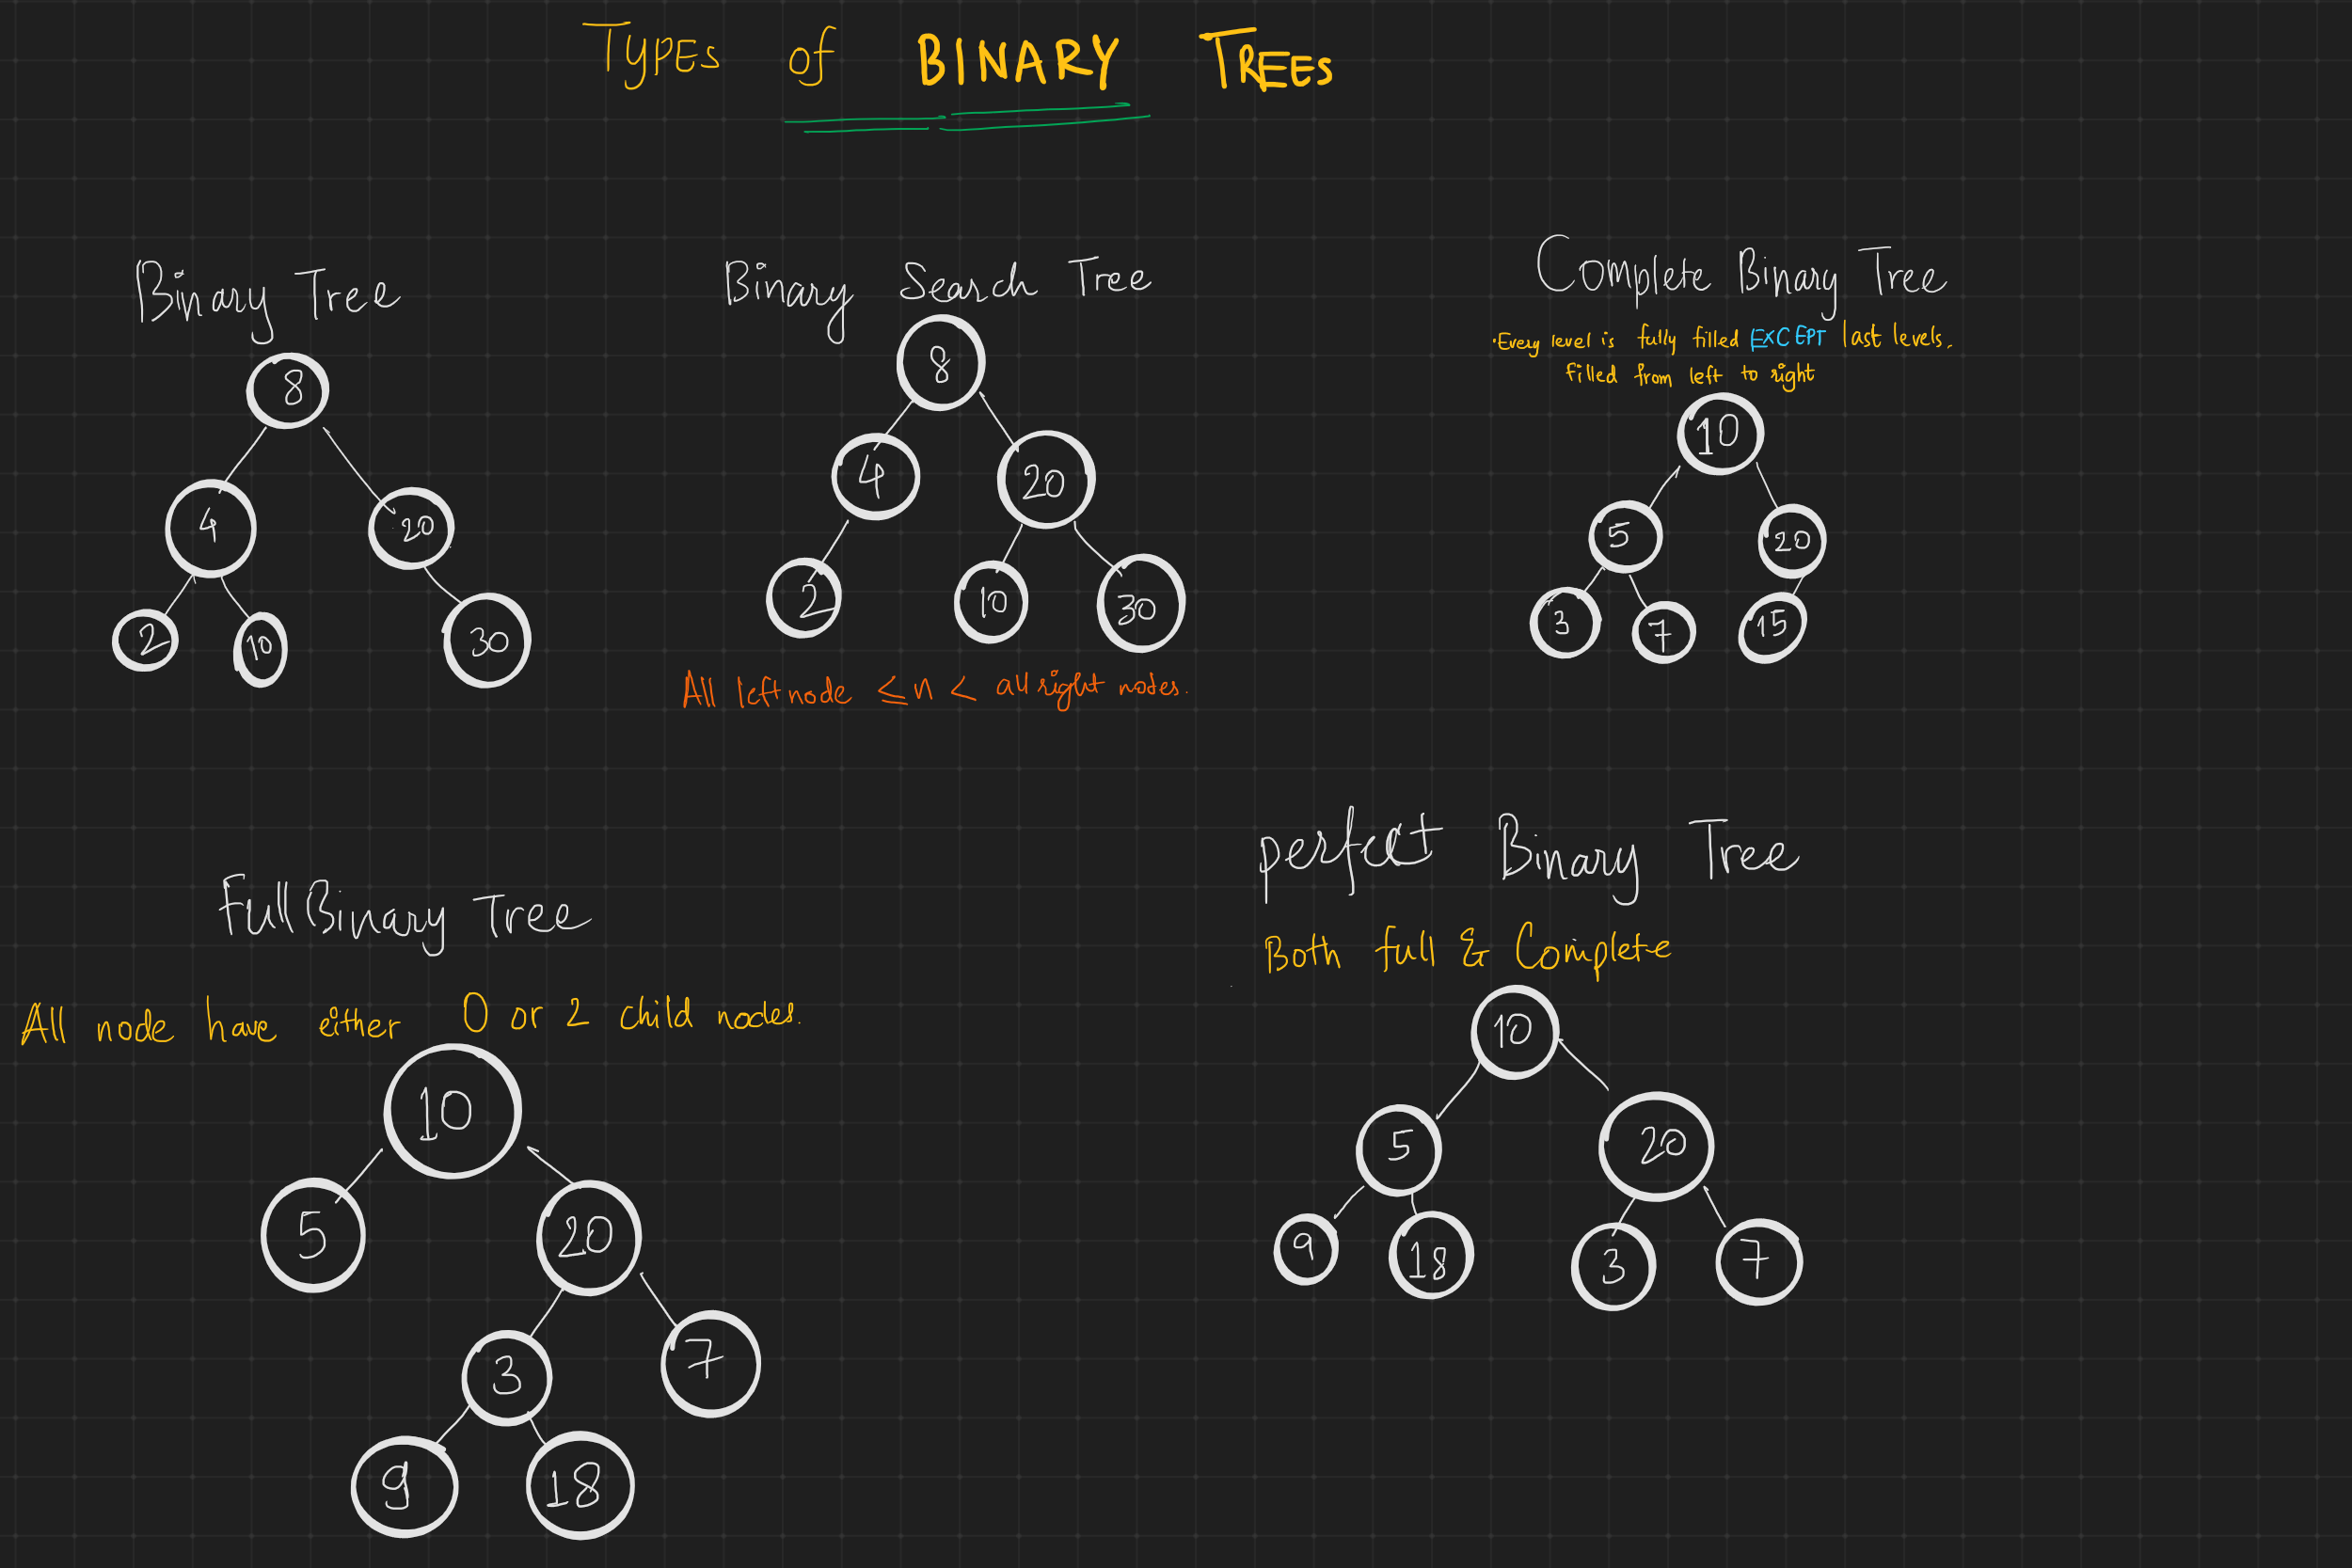 TYPES of BINARY TREES
Binary Tree
8
4
20
2
10
30
Binary Search Tree
8
4
20
2
10
30
All left node ≤ n < all right nodes.
Complete Binary Tree
·Every level is fully filled EXCEPT last levels.
filled from left to right
10
5
20
3
7
15
Full Binary Tree
All node have either 0 or 2 child nodes.
10
5
20
3
7
9
18
perfect Binary Tree
Both full & Complete
10
5
20
9
18
3
7